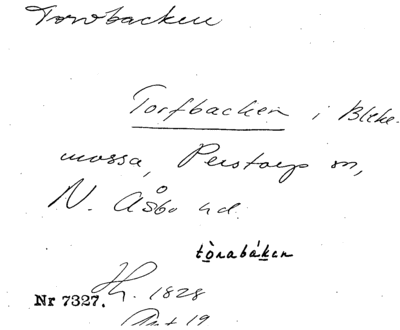 Torvbacken
Torfbacken i Bleke-
mossa, Perstorp sn,
N. Åsbo hd.
tòrabákɛn
Nr 7327. Hh. 1828
Art 19